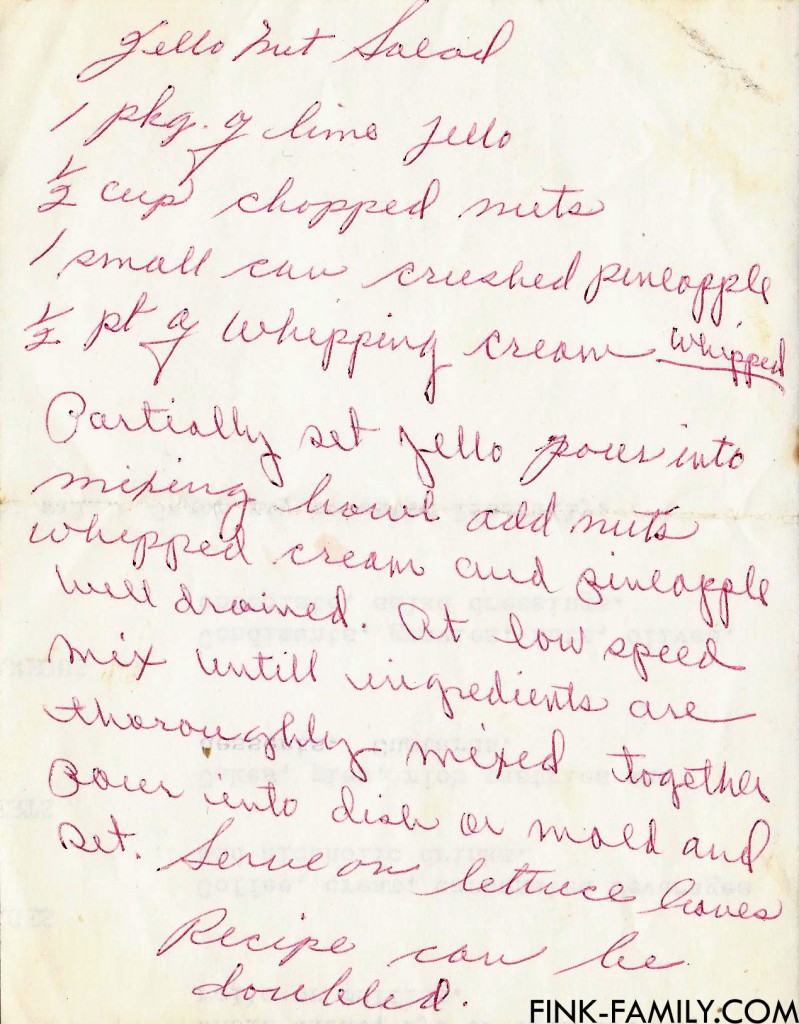 Jello Nut Salad
1 pkg. of lime Jello
1/2 cup chopped nuts
1 small can crushed pineapple
1/2 pt of whipping cream whipped
Partially set jello pour into
mixing bowl add nuts
whipped cream and pineapple
well drained. At low speed
mix untill ingredients are
thoroughly mixed together
Pour into dish or mold and
set. Serve on lettuce leaves
Recipe can be
doubled.
FINK-FAMILY.COM